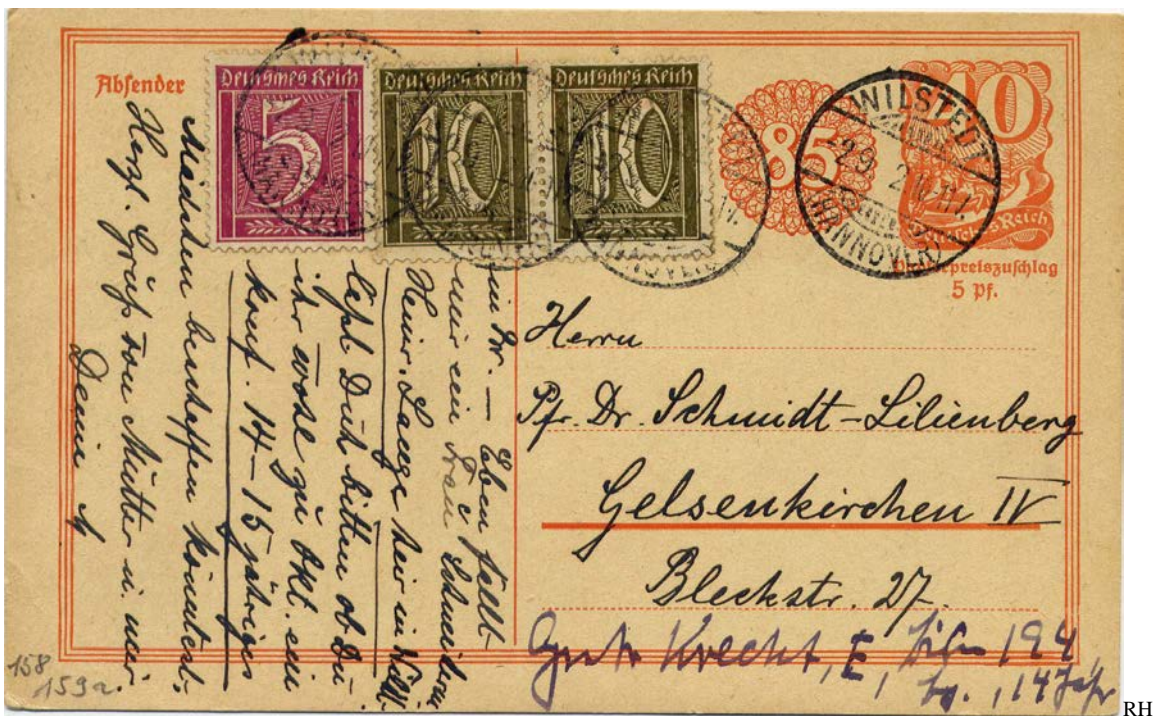 Absender
Deutsches Reich
5
Deutsches Reich
10
Deutsches Reich
10
85
WILSTEDT
(HANNOVER)
10
Deutsches Reich
Papierpreiszuschlag
5 Pf.
Herrn
Pfr. Dr. Schmidt-Lilienberg
Gelsenkirchen IV
Bleckstr. 27.
in Br. — Eben
mir ein Frau
Heinr. Lange hier in
läßt Dich bitten ob Du
ihr wohl zu Okt. ein
konf. 14–15 jähriges
Mädchen beschaffen könntest.
Herzl. Grüße von Mutter u. mir
Dein
Knecht, E,
194
14 Jahr
158
159a.
RH